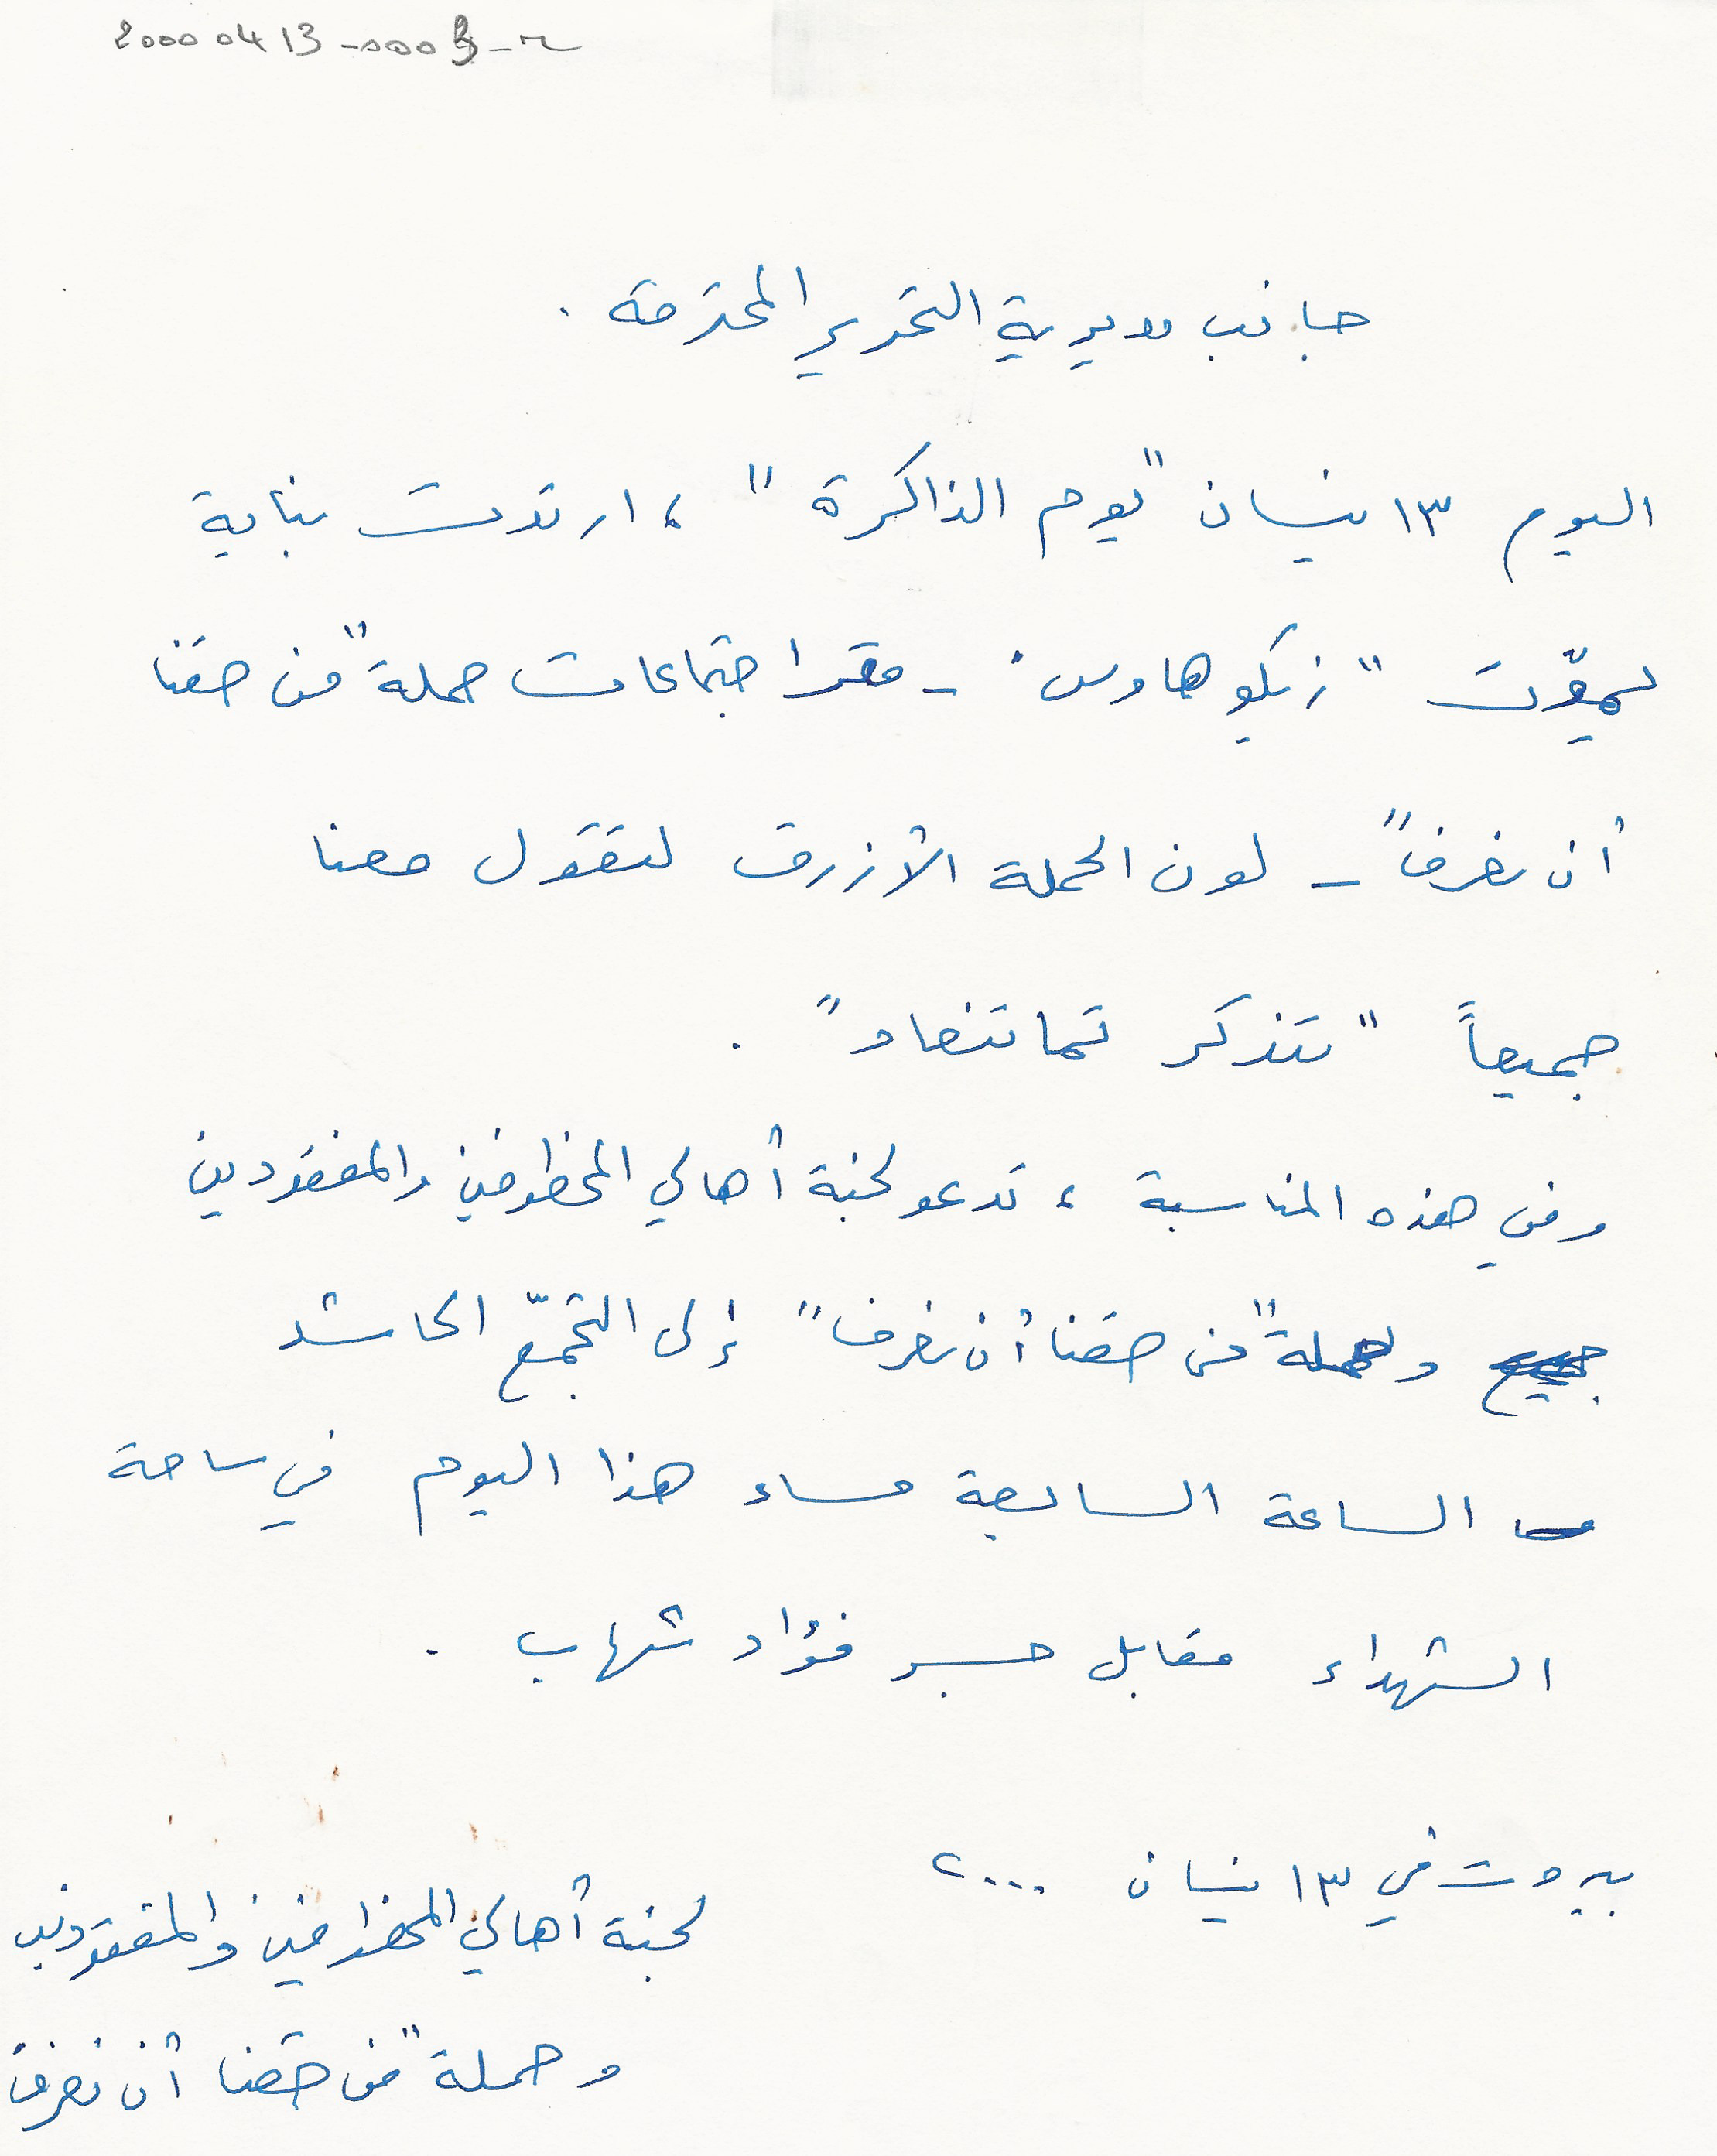 20000413-0003-r
جانب مديرية التحرير المحترمة .
اليوم ١٣ نيسان "يوم الذاكرة" ، ارتدت بناية
"زيكو هاوس" - مقر اجتماعات حملة "من حقنا
أن نعرف" - لون الحملة الأزرق لتقول معنا
جميعاً "تنذكر تما تنعاد" .
وفي هذه المناسبة ، تدعو لجنة أهالي المخطوفين والمفقودين
وحملة "من حقنا أن نعرف" إلى التجمّع الحاشد
الساعة السابعة مساء هذا اليوم في ساحة
الشهداء مقابل جسر فؤاد شهاب .
بيروت في ١٣ نيسان ٢٠٠٠
لجنة أهالي المخطوفين والمفقودين
وحملة "من حقنا أن نعرف